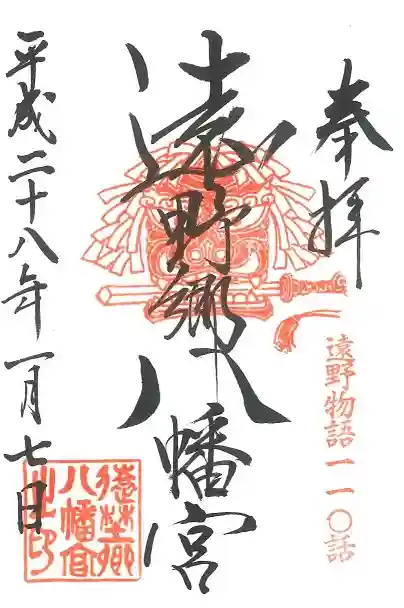 奉拝
遠野物語一一〇話
遠野郷八幡宮
遠野郷
八幡宮
之印
平成二十八年一月七日